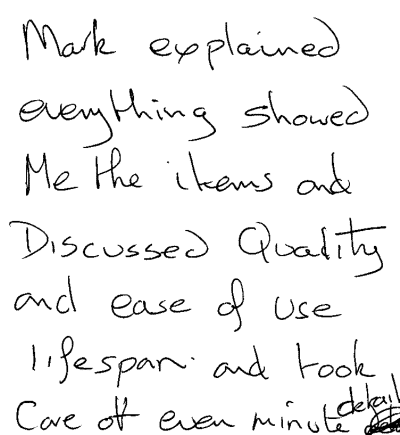 Mark explained
everything showed
Me the items and
Discussed Quality
and ease of use
lifespan. and took
Care off even minute detail